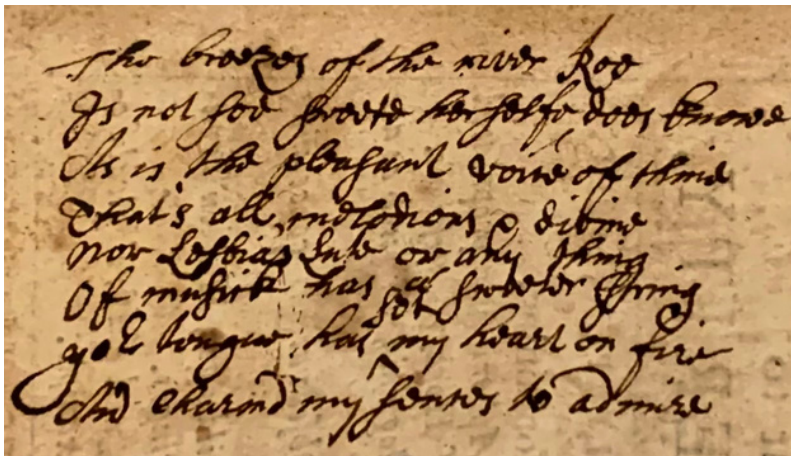 The breezes of the river Roe
Is not soe sweete herselfe does knowe
As is the pleasant voice of thine
That's all melodious & divine
nor Lesbias Lute or any thing
Of musick has a sweeter string
yor tongue has set my heart on fire
And charmd my senses to admire